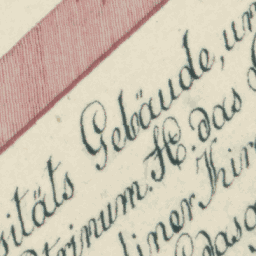 sitäts Gebäude, un
trinum. H. das
liner Kir
das